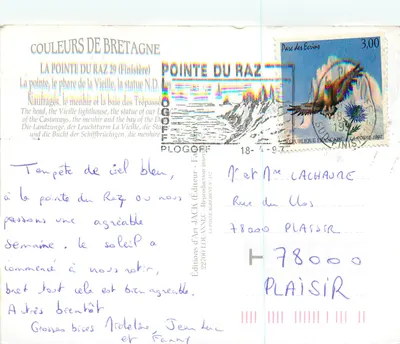 COULEURS DE BRETAGNE
LA POINTE DU RAZ 29 (Finistère)
La pointe, le phare de la Vieille, la statue N.D.
Naufragés, le menhir et la baie des Trépassés
The head, the Vieille lighthouse, the statue of Our Lady
of the Castaways, the menhir and the bay of the
Die Landzunge, der Leuchtturm La Vieille, die
und die Bucht der Schiffbrüchigen, die
POINTE DU RAZ
PLOGOFF
PLOGOFF
18-4-97
Parc des Ecrins
3,00
Editions d'Art JACK
Tempête de ciel bleu,
à la pointe du Raz où nous
passons une agréable
semaine. le soleil a
commencé à nous rôtir,
bref tout cela est bien agréable.
A très bientôt
Grosses bises
et Fanny
Mr et Mme LACHAVRE
Rue du Clos
78000 PLAISIR
78000
PLAISIR